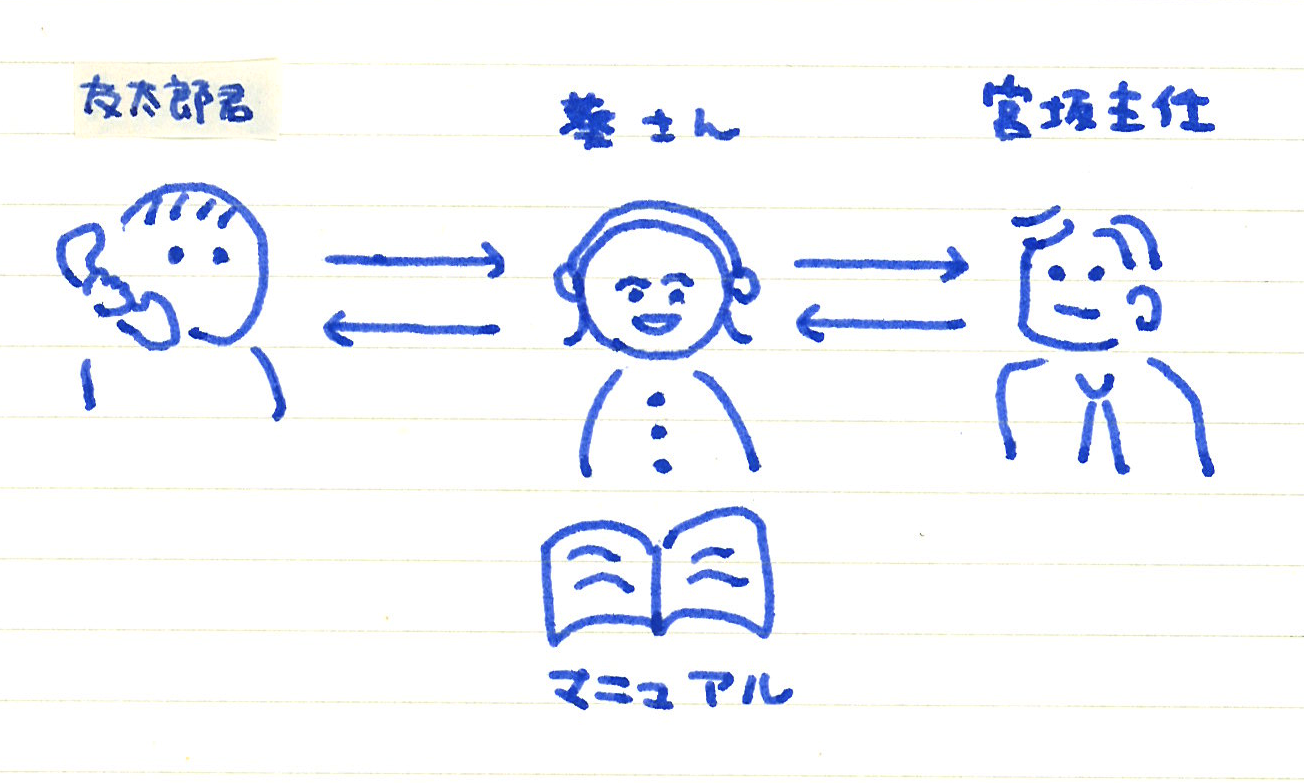 友太郎君
葵さん
宮坂主任
マニュアル